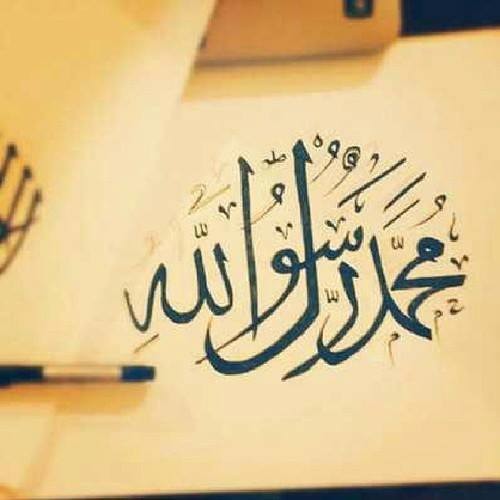 مُحَمَّد رَّسُولُ اللهِ